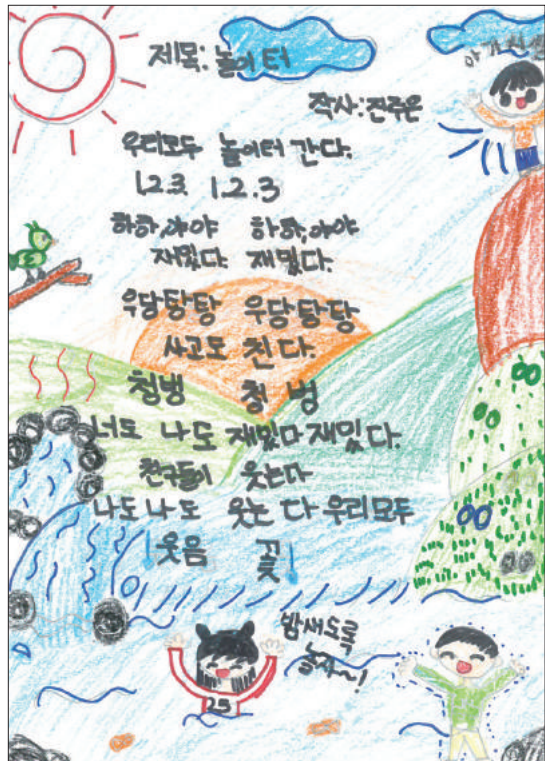 제목:놀이터
아기천생
작사:전주은
우리모두 놀이터 간다.
1.2.3. 1.2.3
하하,야야 하하,야야
재밌다 재밌다.
우당탕탕 우당탕탕
사고도 친다.
첨벙 첨벙
너도 나도 재밌다 재밌다.
친구들이 웃는다
나도 나도 웃는 다 우리모두
웃음 꽃
밤새도록
놀자~!
25